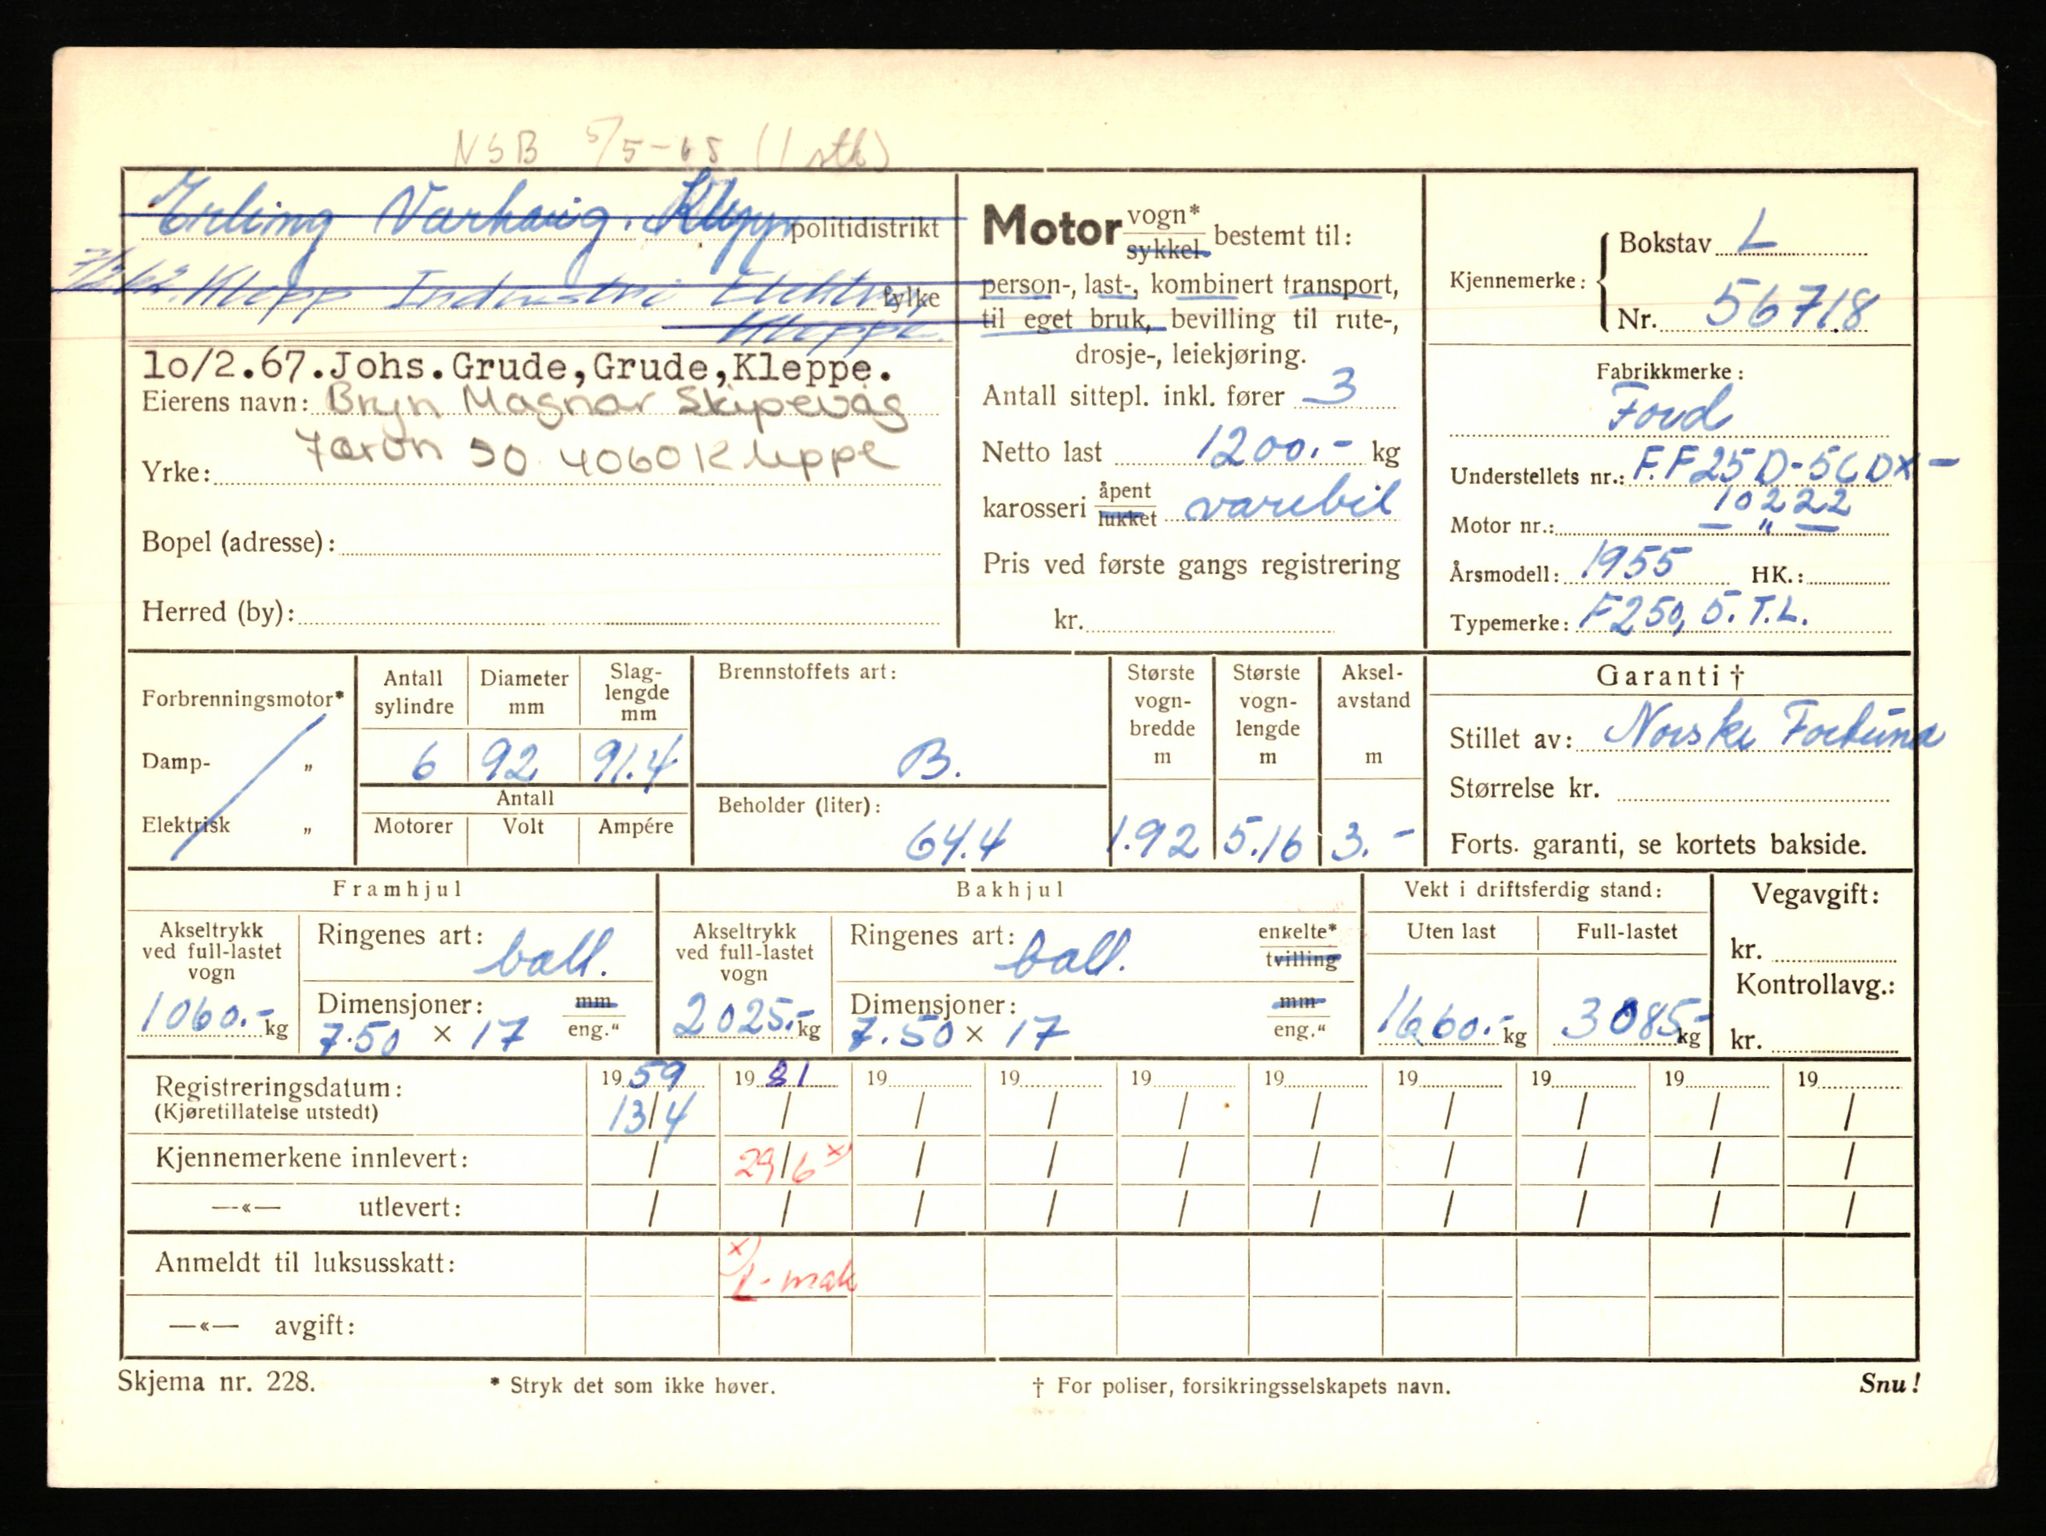 NSB 5/5-65 (1 stk)
Erling Varhaug. Klepp politidistrikt
Klepp Industri Elektr. fylke
Kleppe
1o/2.67.Johs.Grude,Grude,Kleppe.
Eierens navn: Bryn Magnar Skipevåg
50 4060 Kleppe
Yrke:
Bopel (adresse):
Herred (by):
Motor vogn* sykkel bestemt til:
person-, last-, kombinert transport,
til eget bruk, bevilling til rute-,
drosje-, leiekjøring.
Antall sittepl. inkl. fører 3
Netto last 1200.- kg
karosseri åpent lukket varebil
Pris ved første gangs registrering
kr.
Kjennemerke: Bokstav L
Nr. 56718
Fabrikkmerke:
Ford
Understellets nr.: F.F25D-5CDX-
10222
Motor nr.: — " —
Årsmodell: 1955 HK.:
Typemerke: F250, 5.T.L.
Forbrenningsmotor*
Damp- „
Elektrisk „
Antall sylindre Diameter mm Slag-lengde mm
6 92 91.4
Antall
Motorer Volt Ampére
Brennstoffets art:
B.
Beholder (liter):
64.4
Største vogn-bredde m Største vogn-lengde m Aksel-avstand m
1.92 5.16 3.-
Garanti †
Stillet av: Norske Fortuna
Størrelse kr.
Forts. garanti, se kortets bakside.
Framhjul
Akseltrykk ved full-lastet vogn
1060.- kg
Ringenes art: ball.
Dimensjoner: mm
7.50 × 17 eng."
Bakhjul
Akseltrykk ved full-lastet vogn
2025.- kg
Ringenes art: ball. enkelte* tvilling
Dimensjoner: mm
7.50 × 17 eng."
Vekt i driftsferdig stand:
Uten last Full-lastet
1660.- kg 3085.- kg
Vegavgift:
kr.
Kontrollavg.:
kr.
Registreringsdatum: 19 59 19 81 19 19 19 19 19 19 19 19
(Kjøretillatelse utstedt) 13/4 / / / / / / / / /
Kjennemerkene innlevert: / 29/6 x) / / / / / / / /
—«— utlevert: / / / / / / / / / /
Anmeldt til luksusskatt: x) L-
—«— avgift:
Skjema nr. 228. * Stryk det som ikke høver. † For poliser, forsikringsselskapets navn. Snu!